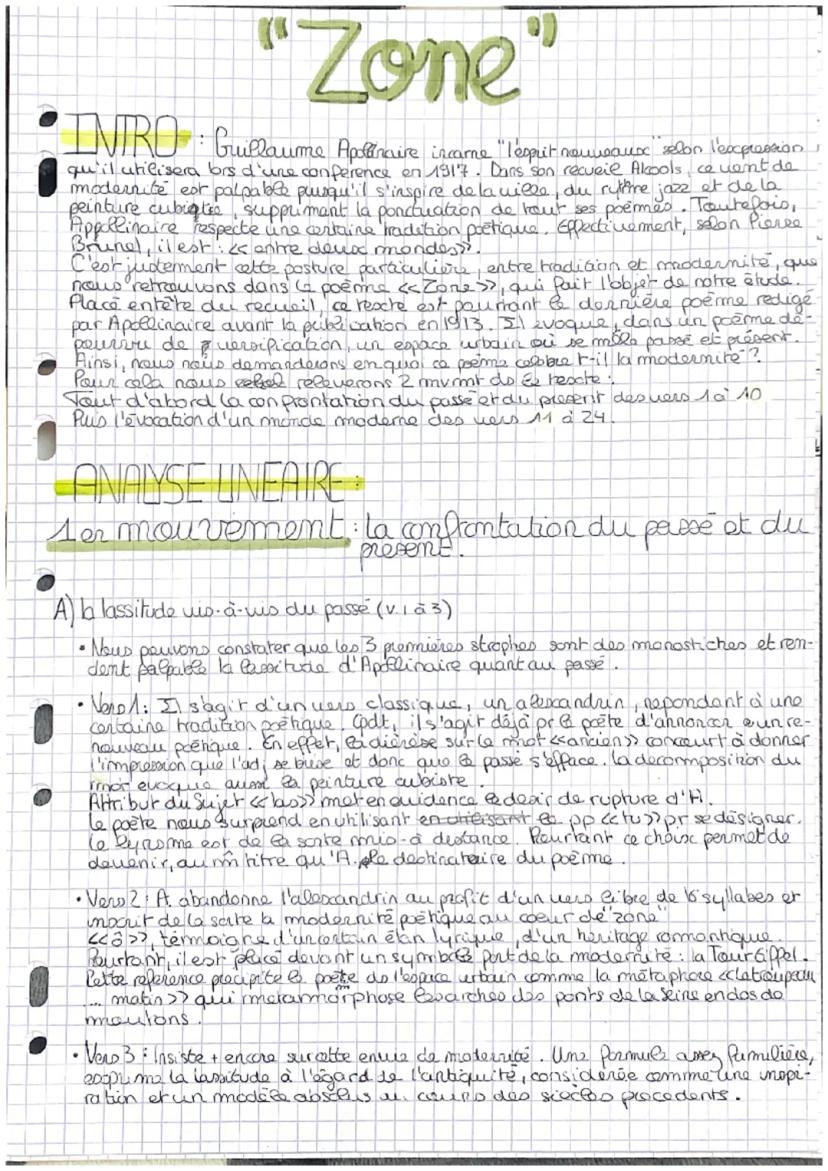 "Zone"
INTRO : Guillaume Apollinaire incarne "l'esprit nouveaux" selon l'expression
qu'il utilisera lors d'une conférence en 1917. Dans son recueil Alcools, ce vent de
modernité est palpable puisqu'il s'inspire de la ville, du rythme jazz et de la
peinture cubiste, supprimant la ponctuation de tout ses poèmes. Toutefois,
Appollinaire respecte une certaine tradition poétique. Effectivement, selon Pierre
Brunel, il est : << entre deux mondes>>.
C'est justement cette posture particulière, entre tradition et modernité, que
nous retrouvons dans le poème <<Zone>>, qui fait l'objet de notre étude.
Placé entête du recueil, ce texte est pourtant le dernière poème rédigé
par Apollinaire avant la publication en 1913. Il évoque, dans un poème dé-
pourvu de versification, un espace urbain où se mêle passé et présent.
Ainsi, nous nous demanderons en quoi ce poème célèbre t-il la modernité ?
Pour cela nous relèverons 2 mvmt ds le texte :
Tout d'abord la confrontation du passé et du présent des vers 1 à 10
Puis l'évocation d'un monde moderne des vers 11 à 24.
ANALYSE LINEAIRE :
1er mouvement : la confrontation du passé et du
présent.
A) la lassitude vis-à-vis du passé (v.1 à 3)
• Nous pouvons constater que les 3 premières strophes sont des monostiches et ren-
dent palpable la lassitude d'Apollinaire quant au passé.
• Vers 1 : Il s'agit d'un vers classique, un alexandrin, répondant à une
certaine tradition poétique. Cpdt, il s'agit déjà pr le poète d'annoncer un re-
nouveau poétique. En effet, la diérèse sur le mot <<ancien>> concourt à donner
l'impression que l'adj se brise et donc que le passé s'efface. La décomposition du
mot évoque aussi la peinture cubiste.
Attribut du Sujet <<las>> met en évidence le désir de rupture d'A.
le poète nous surprend en utilisant le pp <<tu>> pr se désigner.
Le lyrisme est de la sorte mis à distance. Pourtant ce choix permet de
devenir, au m̂ titre qu'A. le destinataire du poème.
• Vers 2 : A. abandonne l'alexandrin au profit d'un vers libre de 16 syllabes et
inscrit de la sorte la modernité poétique au coeur de "zone"
<<ô>>, témoigne d'un certain élan lyrique, d'un héritage romantique.
Pourtant, il est placé devant un symbole fort de la modernité : la Tour Eiffel.
Cette référence précipite le poète ds l'espace urbain comme la métaphore <<le troupeau
... matin>> qui métamorphose les arches des ponts de la Seine en dos de
moutons.
• Vers 3 : Insiste + encore sur cette envie de modernité. Une formule assez familière,
exprime la lassitude à l'égard de l'antiquité, considérée comme une inspi-
ration et un modèle absolus au cours des siècles précédents.